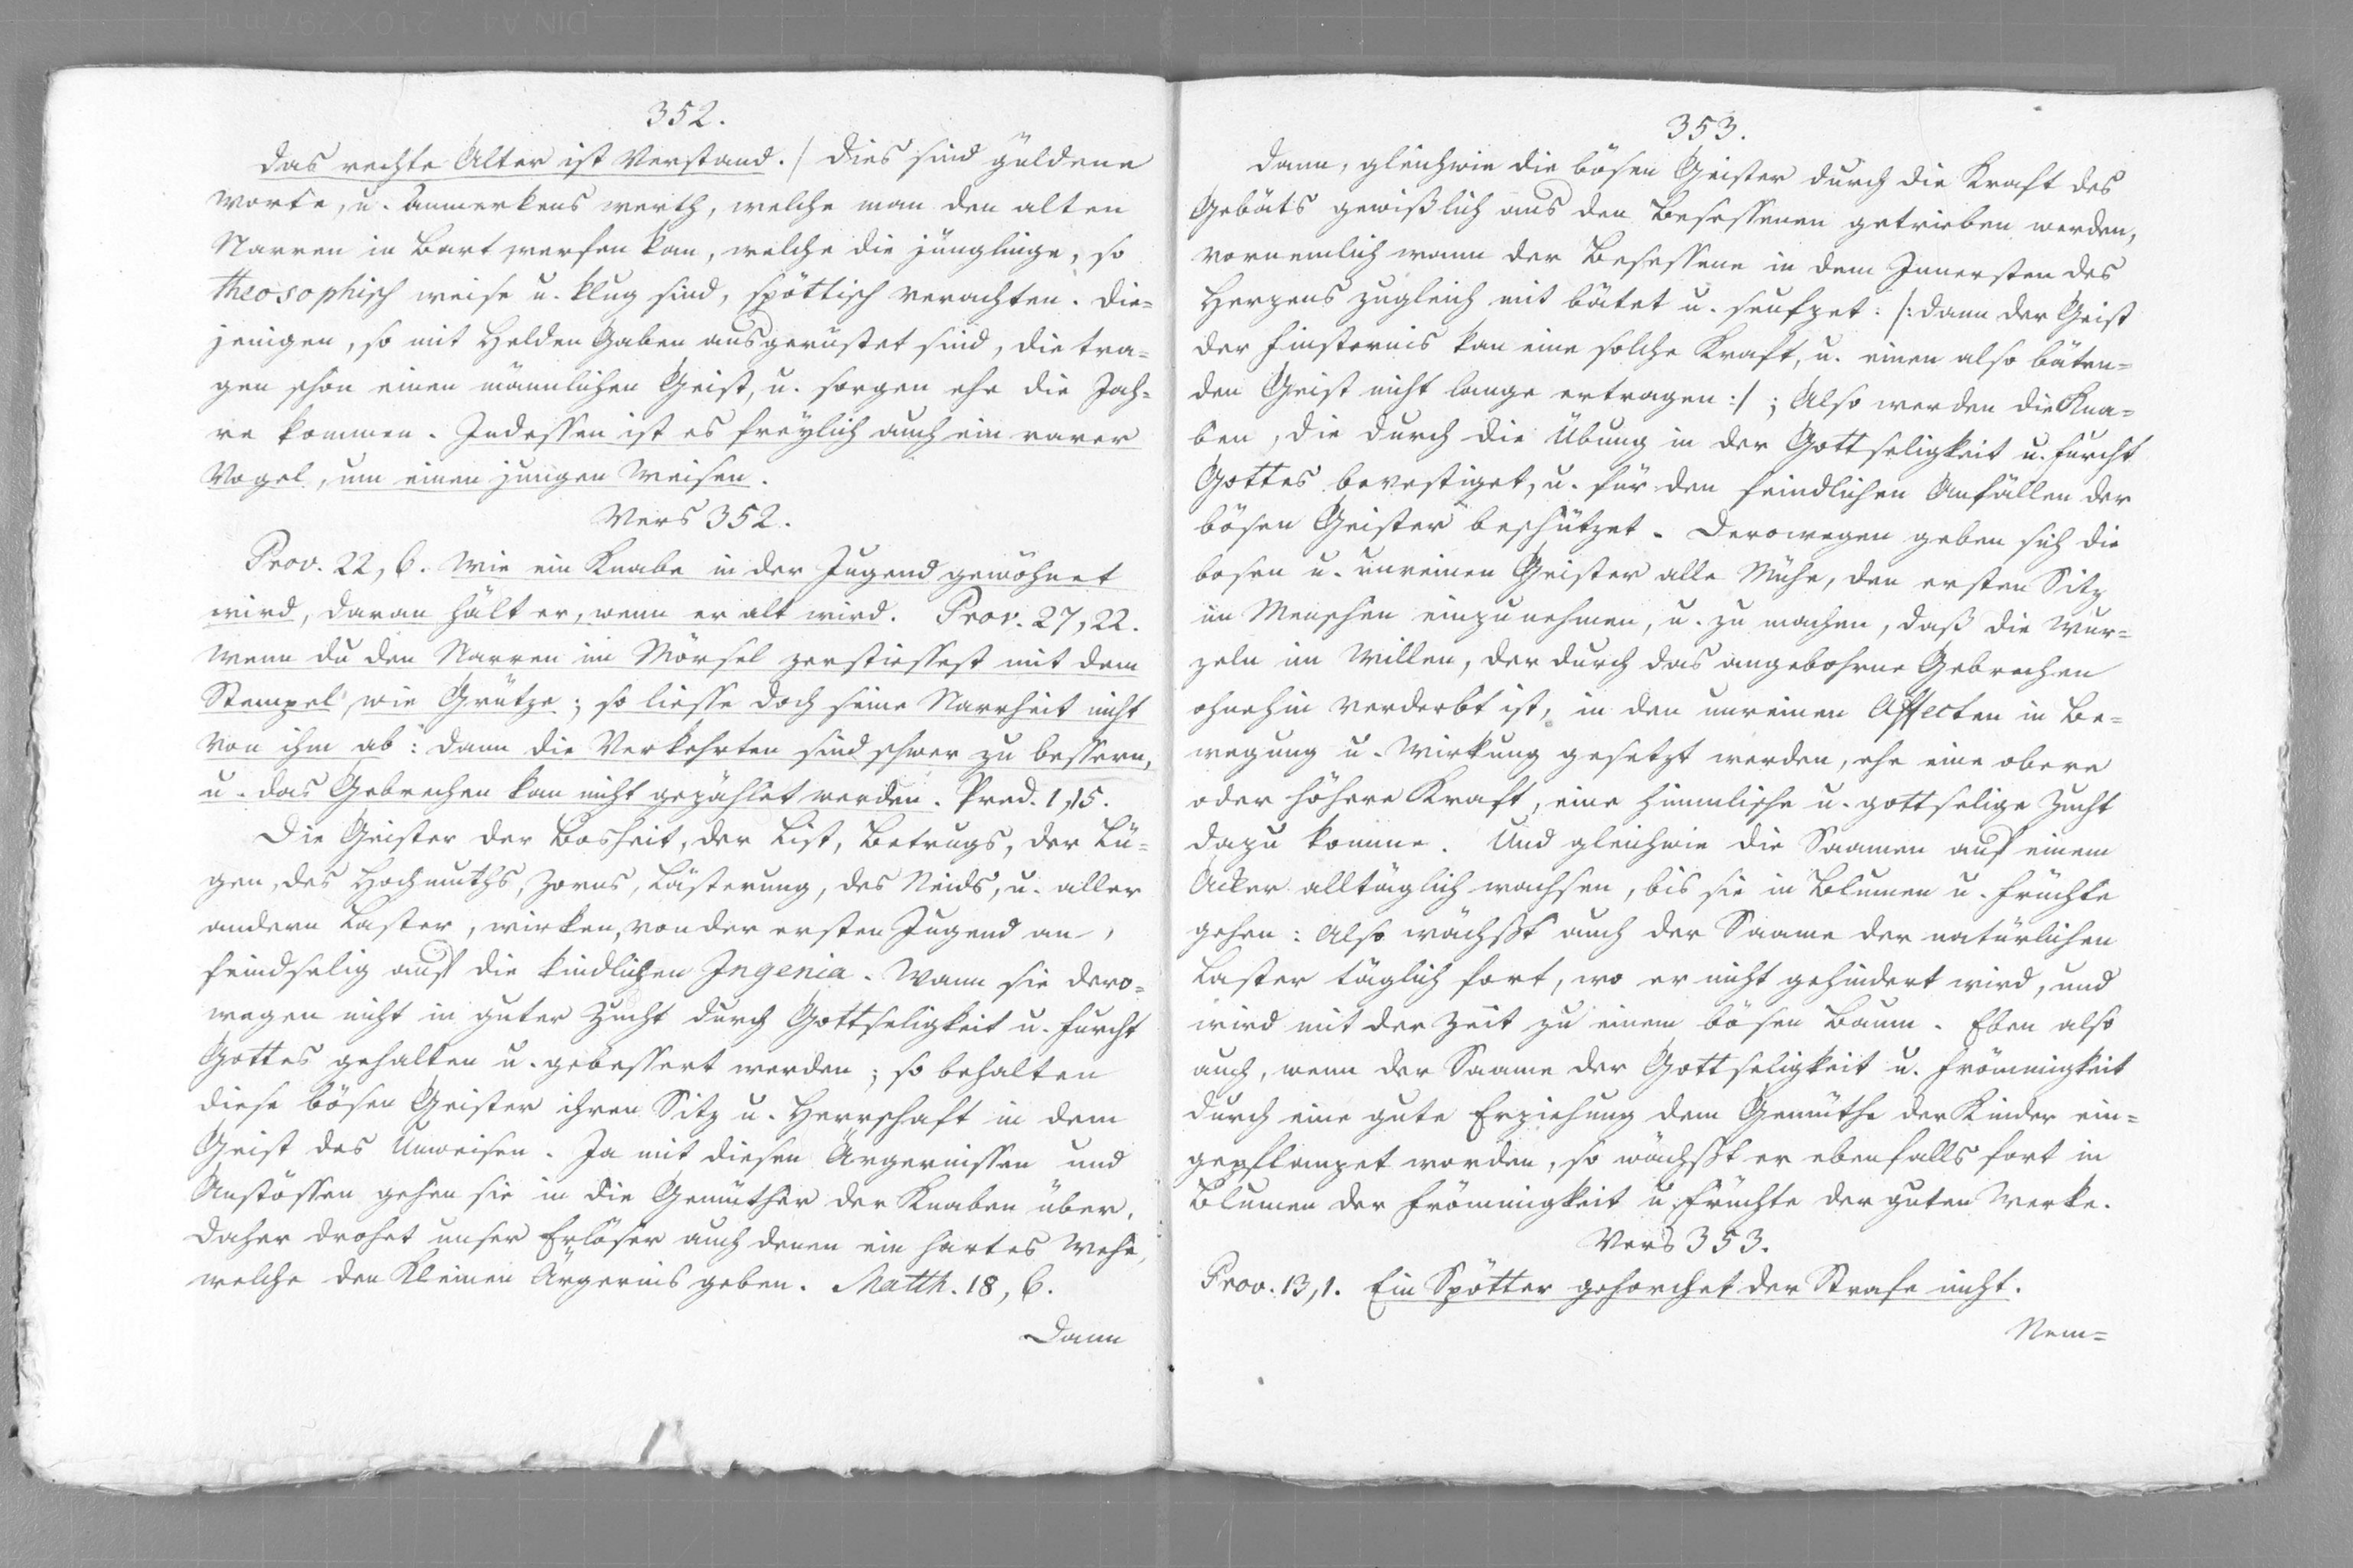 352.
das rechte Alter ist Verstand. / dies sind güldene
Worte, u. Anmerkens werth, welche man den alten
Narren in Bart werfen kan, welche die jünglinge, so
theosophisch weise u. klug sind, spöttisch verachten. die=
jenigen, so mit Helden Gaben ausgerüstet sind, die tra=
gen schon einen männlichen Geist, u. sorgen ehe die Jah=
re kommen. Indessen ist es freÿlich auch ein rarer
Vogel, um einen jungen Weisen.
Vers 352.
Prov. 22, 6. Wie ein Knabe in der Jugend gewöhnet
wird, daran hält er, wenn er alt wird. Prov. 27, 22.
Wenn du den Narren im Mörsel zerstiessest mit dem
Stempel wie Grütze; so liesse doch seine Narrheit nicht
von ihm ab: dann die Verkehrten sind schwer zu bessern,
u. das Gebrechen kan nicht gezählet werden. Pred. 1, 15.
Die Geister der Bosheit, der List, Betrugs, der Lü=
gen, des Hochmuths, Zorns, Lästerung, des Neids, u. aller
andern Laster, wirken, von der ersten Jugend an,
feindselig auf die kindlichen Ingenia. Wann sie dero=
wegen nicht in guter Zucht durch Gottseligkeit u. Furcht
Gottes gehalten u. gebessert werden; so behalten
diese bösen Geister ihren Sitz u. Herrschaft in dem
Geist des Unweisen. Ja mit diesen Ärgernissen und
Anstössen gehen sie in die Gemüther der Knaben über.
daher drohet unser Erlöser auch denen ein hartes Wehe,
welche den Kleinen Ärgernis geben. Matth. 18, 6.
Dann
353.
Dann, gleichwie die bösen Geister durch die Kraft des
Gebäts gewißlich aus den Besessenen getrieben werden,
vornemlich wann der Besessene in dem Innersten des
Herzens zugleich mit bätet u. seufzet: /: dann der Geist
der Finsternis kan eine solche Kraft, u. einen also bäten=
den Geist nicht lange ertragen :/ ; Also werden die Kna=
ben, die durch die Übung in der Gottseligkeit u. Furcht
Gottes bevestiget, u. für den feindlichen Anfällen der
bösen Geister beschützet. Derowegen geben sich die
bosen u. unreinen Geister alle Mühe, den ersten Sitz
im Menschen einzunehmen, u. zu machen, daß die Wur=
zeln im Willen, der durch das angebohrne Gebrechen
ohnehin verderbt ist, in den unreinen Affecten in Be=
wegung u. Wirkung gesetzt werden, ehe eine obere
oder höhere Kraft, eine himmlische u. gottselige Zucht
dazu komme. Und gleichwie die Saamen auf einem
Acker alltäglich wachsen, bis sie in Blumen u. Früchte
gehen: Also wächßt auch der Saame der natürlichen
Laster täglich fort, wo er nicht gehindert wird, und
wird mit der Zeit zu einem bösen Baum. Eben also
auch, wenn der Saame der Gottseligkeit u. Frömmigkeit
durch eine gute Erziehung dem Gemüthe der Kinder ein=
gepflanzet worden, so wächßt er ebenfalls fort in
Blumen der Frömmigkeit u. Früchte der guten Werke.
Vers 353.
Prov. 13, 1. Ein Spötter gehorchet der Strafe nicht.
Nem=